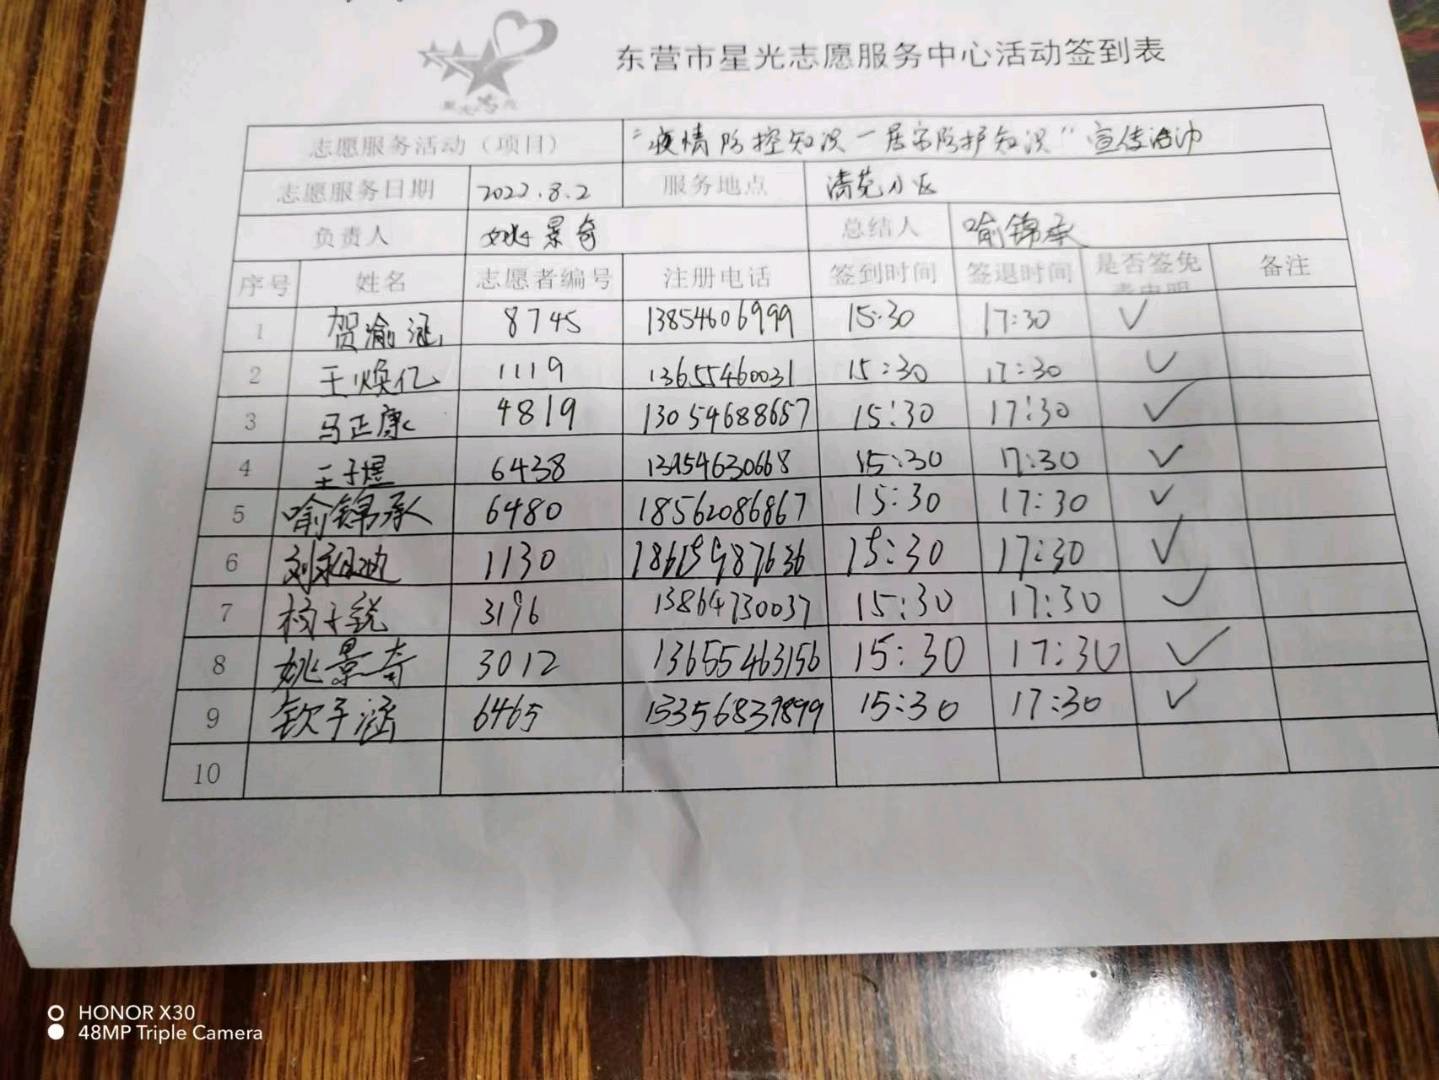 东营市星光志愿服务中心活动签到表
志愿服务活动（项目） “疫情防控知识—居家防护知识”宣传活动
志愿服务日期 2022.8.2 服务地点 清苑小区
负责人 姚景奇 总结人 喻锦承
序号 姓名 志愿者编号 注册电话 签到时间 签退时间 是否签免 备注
1 贺渝涵 8745 13854606999 15:30 17:30 ✓
2 王焕亿 1119 13655460031 15:30 17:30 ✓
3 马正康 4819 13054688657 15:30 17:30 ✓
4 王子煜 6438 15:30 17:30 ✓
5 喻锦承 6480 18562086867 15:30 17:30 ✓
6 1130 18615987636 15:30 17:30 ✓
7 杨子锐 3196 13864730037 15:30 17:30 ✓
8 姚景奇 3012 13655463156 15:30 17:30 ✓
9 钦子涵 6465 15:30 17:30 ✓
10
HONOR X30
48MP Triple Camera